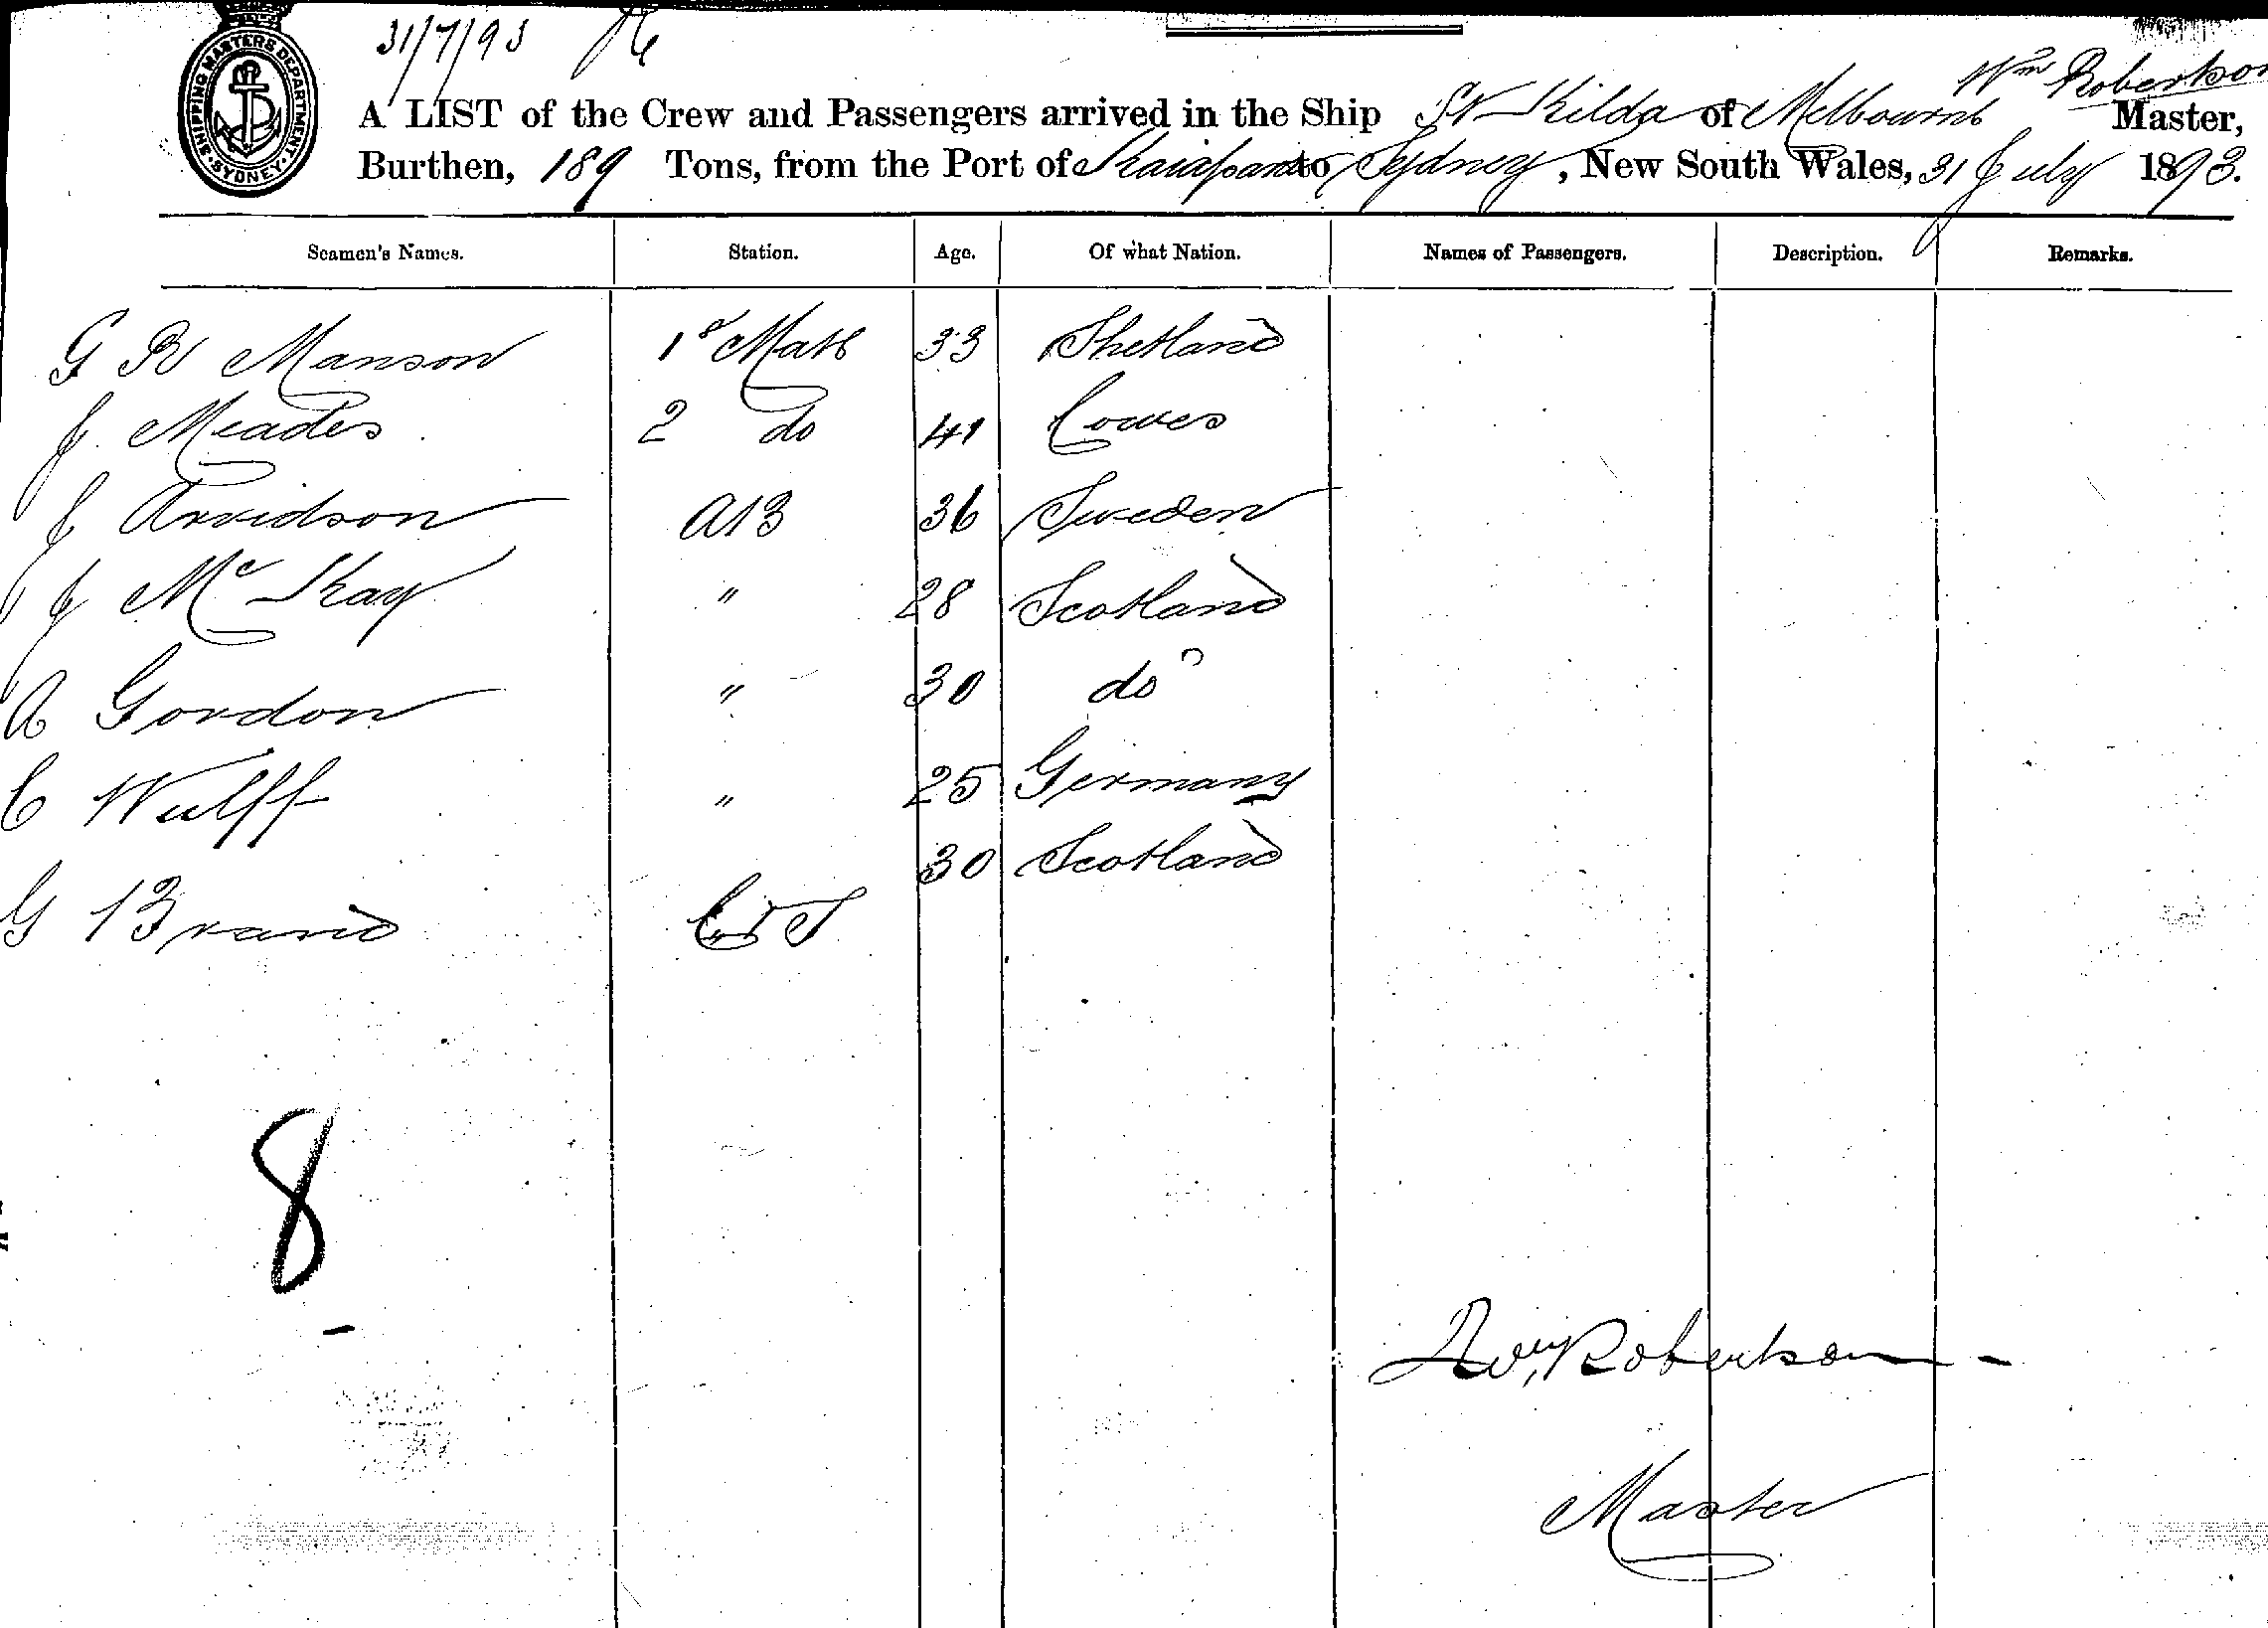 31/7/93
SHIPPING MASTERS DEPARTMENT. SYDNEY.
Wm Robertson
A LIST of the Crew and Passengers arrived in the Ship St Kilda of Melbourne Master,
Burthen, 189 Tons, from the Port of Kaiapara to Sydney, New South Wales, 31 July 1893.
Seamen's Names. Station. Age. Of what Nation. Names of Passengers. Description. Remarks.
G W Manson 1st Mate 33 Shetland
J. Meades 2 do 41 Cowes
J Arvidson AB 36 Sweden
J McKay " 28 Scotland
A Gordon " 30 do
C Wulff " 25 Germany
G Brand C&S 30 Scotland
8
Wm Robertson
Master